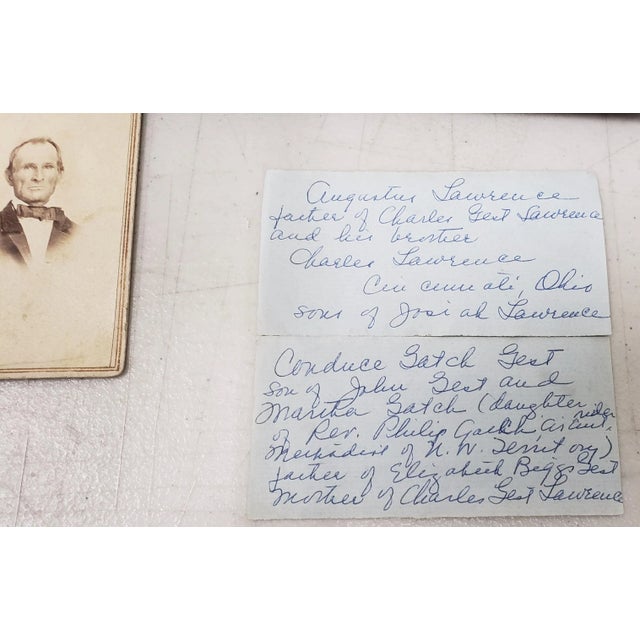 Augustus Lawrence
father of Charles Gest Lawrence
and his brother
Charles Lawrence
Cincinnati, Ohio
sons of Josiah Lawrence
Conduce Gatch Gest
son of John Gest and
Martha Gatch (daughter
of Rev. Philip Gatch Circuit rider
Methodist of N.W. Territory)
father of Elizabeth Biggs Gest
Mother of Charles Gest Lawrence